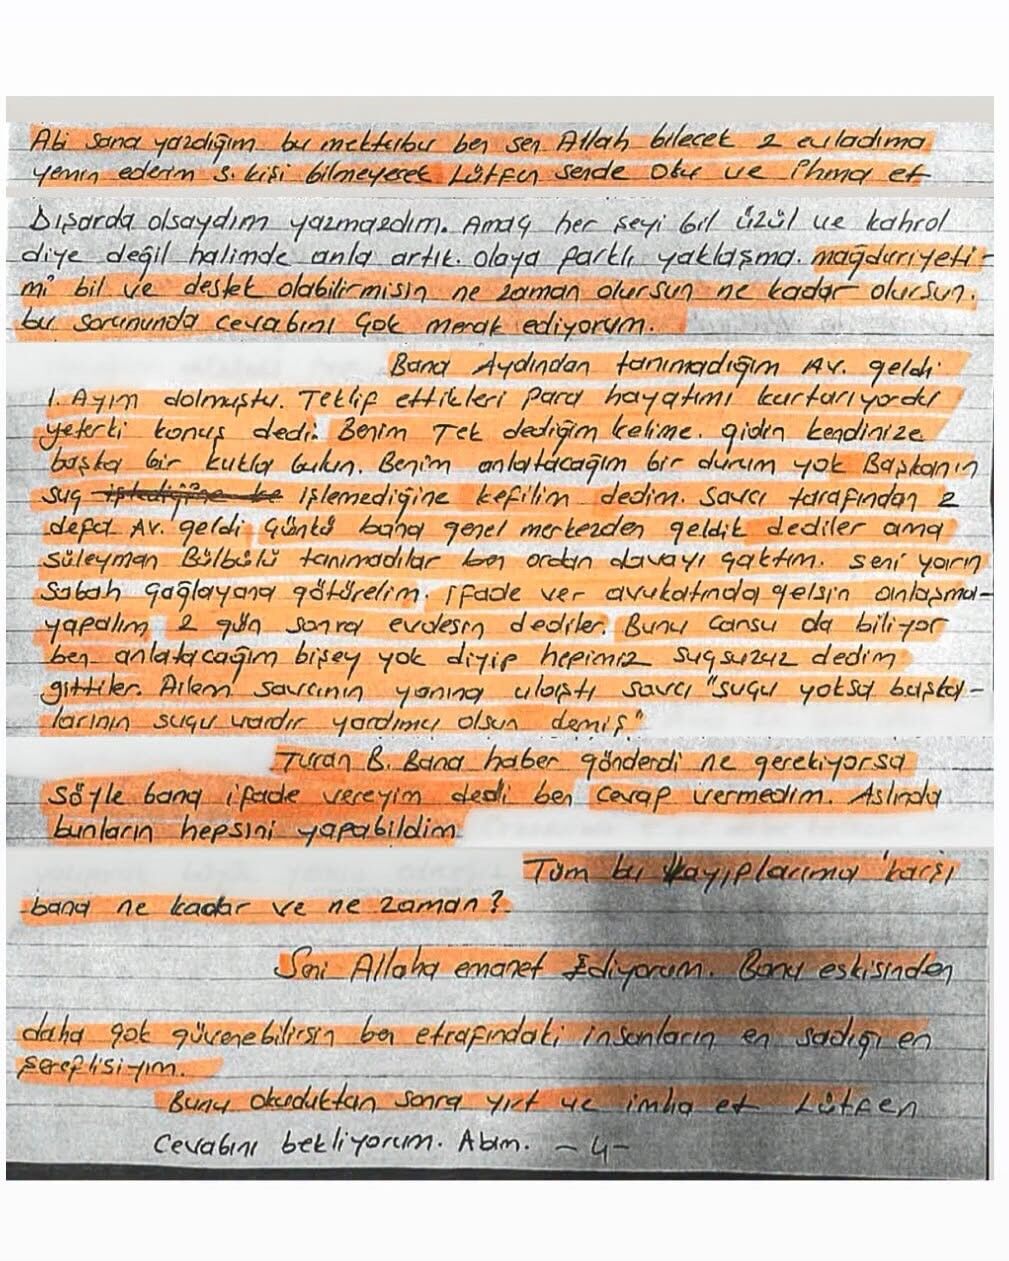 Abi sana yazdığım bu mektubu ben sen Allah bilecek 2 evladıma
yemin ederim 3. kişi bilmeyecek Lütfen sende oku ve imha et
Dışarda olsaydım yazmazdım. Amaç her şeyi bil üzül ve kahrol
diye değil halimde anla artık. olaya farklı yaklaşma. mağduriyeti-
mi bil ve destek olabilirmisin ne zaman olursun ne kadar olursun.
bu sorununda cevabını çok merak ediyorum.
Bana Aydından tanımadığım Av. geldi
1. Ayım dolmuştu. Teklif ettikleri para hayatımı kurtarıyordu
yeterki konuş dedi. Benim Tek dediğim kelime. gidin kendinize
başka bir kukla bulun. Benim anlatacağım bir durum yok Başkanın
suç işlemediğine kefilim dedim. Savcı tarafından 2
defa Av. geldi Çünkü bana genel merkezden geldik dediler ama
Süleyman Bülbülü tanımadılar ben ordan davayı çaktım. seni yarın
sabah Çağlayana götürelim. ifade ver avukatında gelsin anlaşma-
yapalım 2 gün sonra evdesin dediler. Bunu Cansu da biliyor
ben anlatacağım bişey yok diyip hepimiz suçsuzuz dedim
gittiler. Ailem savcının yanına ulaştı savcı "suçu yoksa başka-
larının suçu vardır yardımcı olsun demiş"
Turan B. Bana haber gönderdi ne gerekiyorsa
söyle bana ifade vereyim dedi ben cevap vermedim. Aslında
bunların hepsini yapabildim
Tüm bu kayıplarıma karşı
bana ne kadar ve ne zaman?
Seni Allaha emanet Ediyorum. Bana eskisinden
daha çok güvenebilirsin ben etrafındaki insanların en sadığı en
şereflisiyim.
Bunu okuduktan sonra yırt ve imha et Lütfen
Cevabını bekliyorum. Abim. -4-